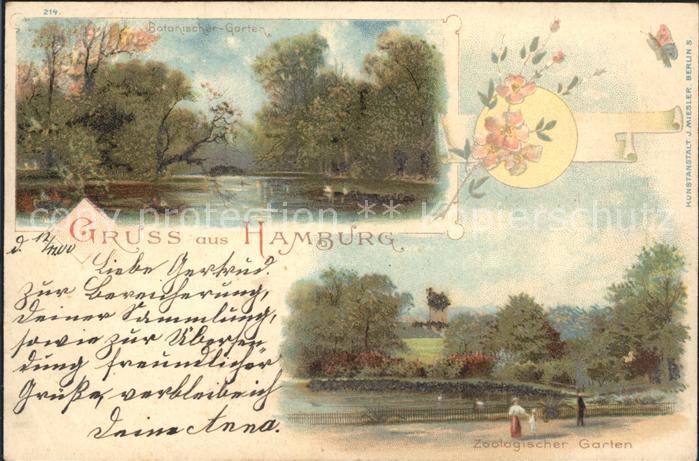 219.
Botanischer-Garten
KUNSTANSTALT J. MIESLER, BERLIN S.
copy protection ** Kopierschutz
GRUSS aus HAMBURG
d. 12/
Liebe Gertrud.
Zur Bereicherung,
deiner Sammlung,
sowie zur Übersen
dung freundlicher
Grüße, verbleibe ich
deine Anna.
Zoologischer Garten